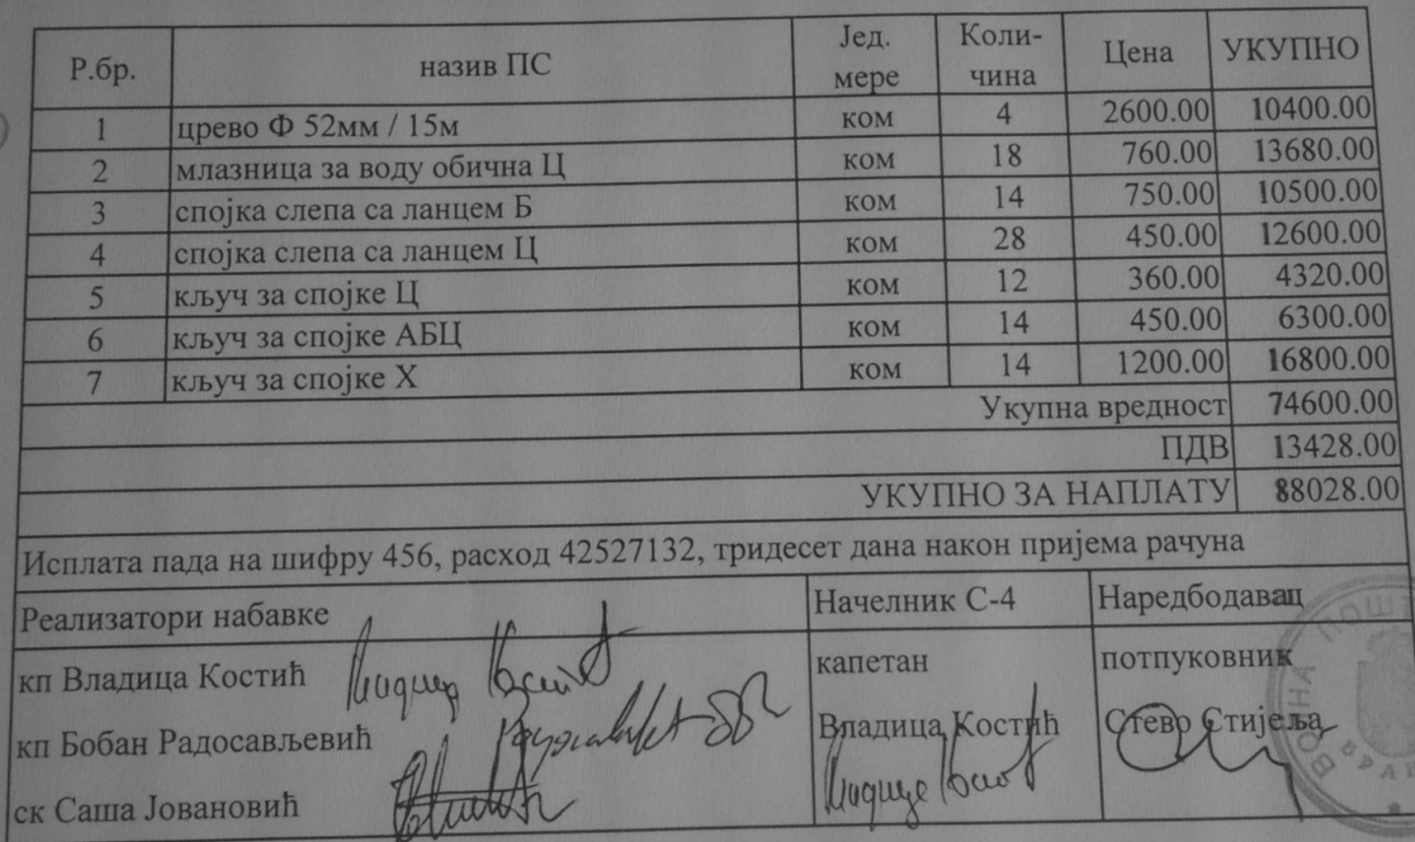 Р.бр. назив ПС Јед. мере Коли-чина Цена УКУПНО
1 црево Ф 52мм / 15м ком 4 2600.00 10400.00
2 млазница за воду обична Ц ком 18 760.00 13680.00
3 спојка слепа са ланцем Б ком 14 750.00 10500.00
4 спојка слепа са ланцем Ц ком 28 450.00 12600.00
5 кључ за спојке Ц ком 12 360.00 4320.00
6 кључ за спојке АБЦ ком 14 450.00 6300.00
7 кључ за спојке Х ком 14 1200.00 16800.00
Укупна вредност 74600.00
ПДВ 13428.00
УКУПНО ЗА НАПЛАТУ 88028.00
Исплата пада на шифру 456, расход 42527132, тридесет дана након пријема рачуна
Реализатори набавке Начелник С-4 Наредбодавац
кп Владица Костић капетан потпуковник
кп Бобан Радосављевић Владица Костић Стево Стијеља
ск Саша Јовановић